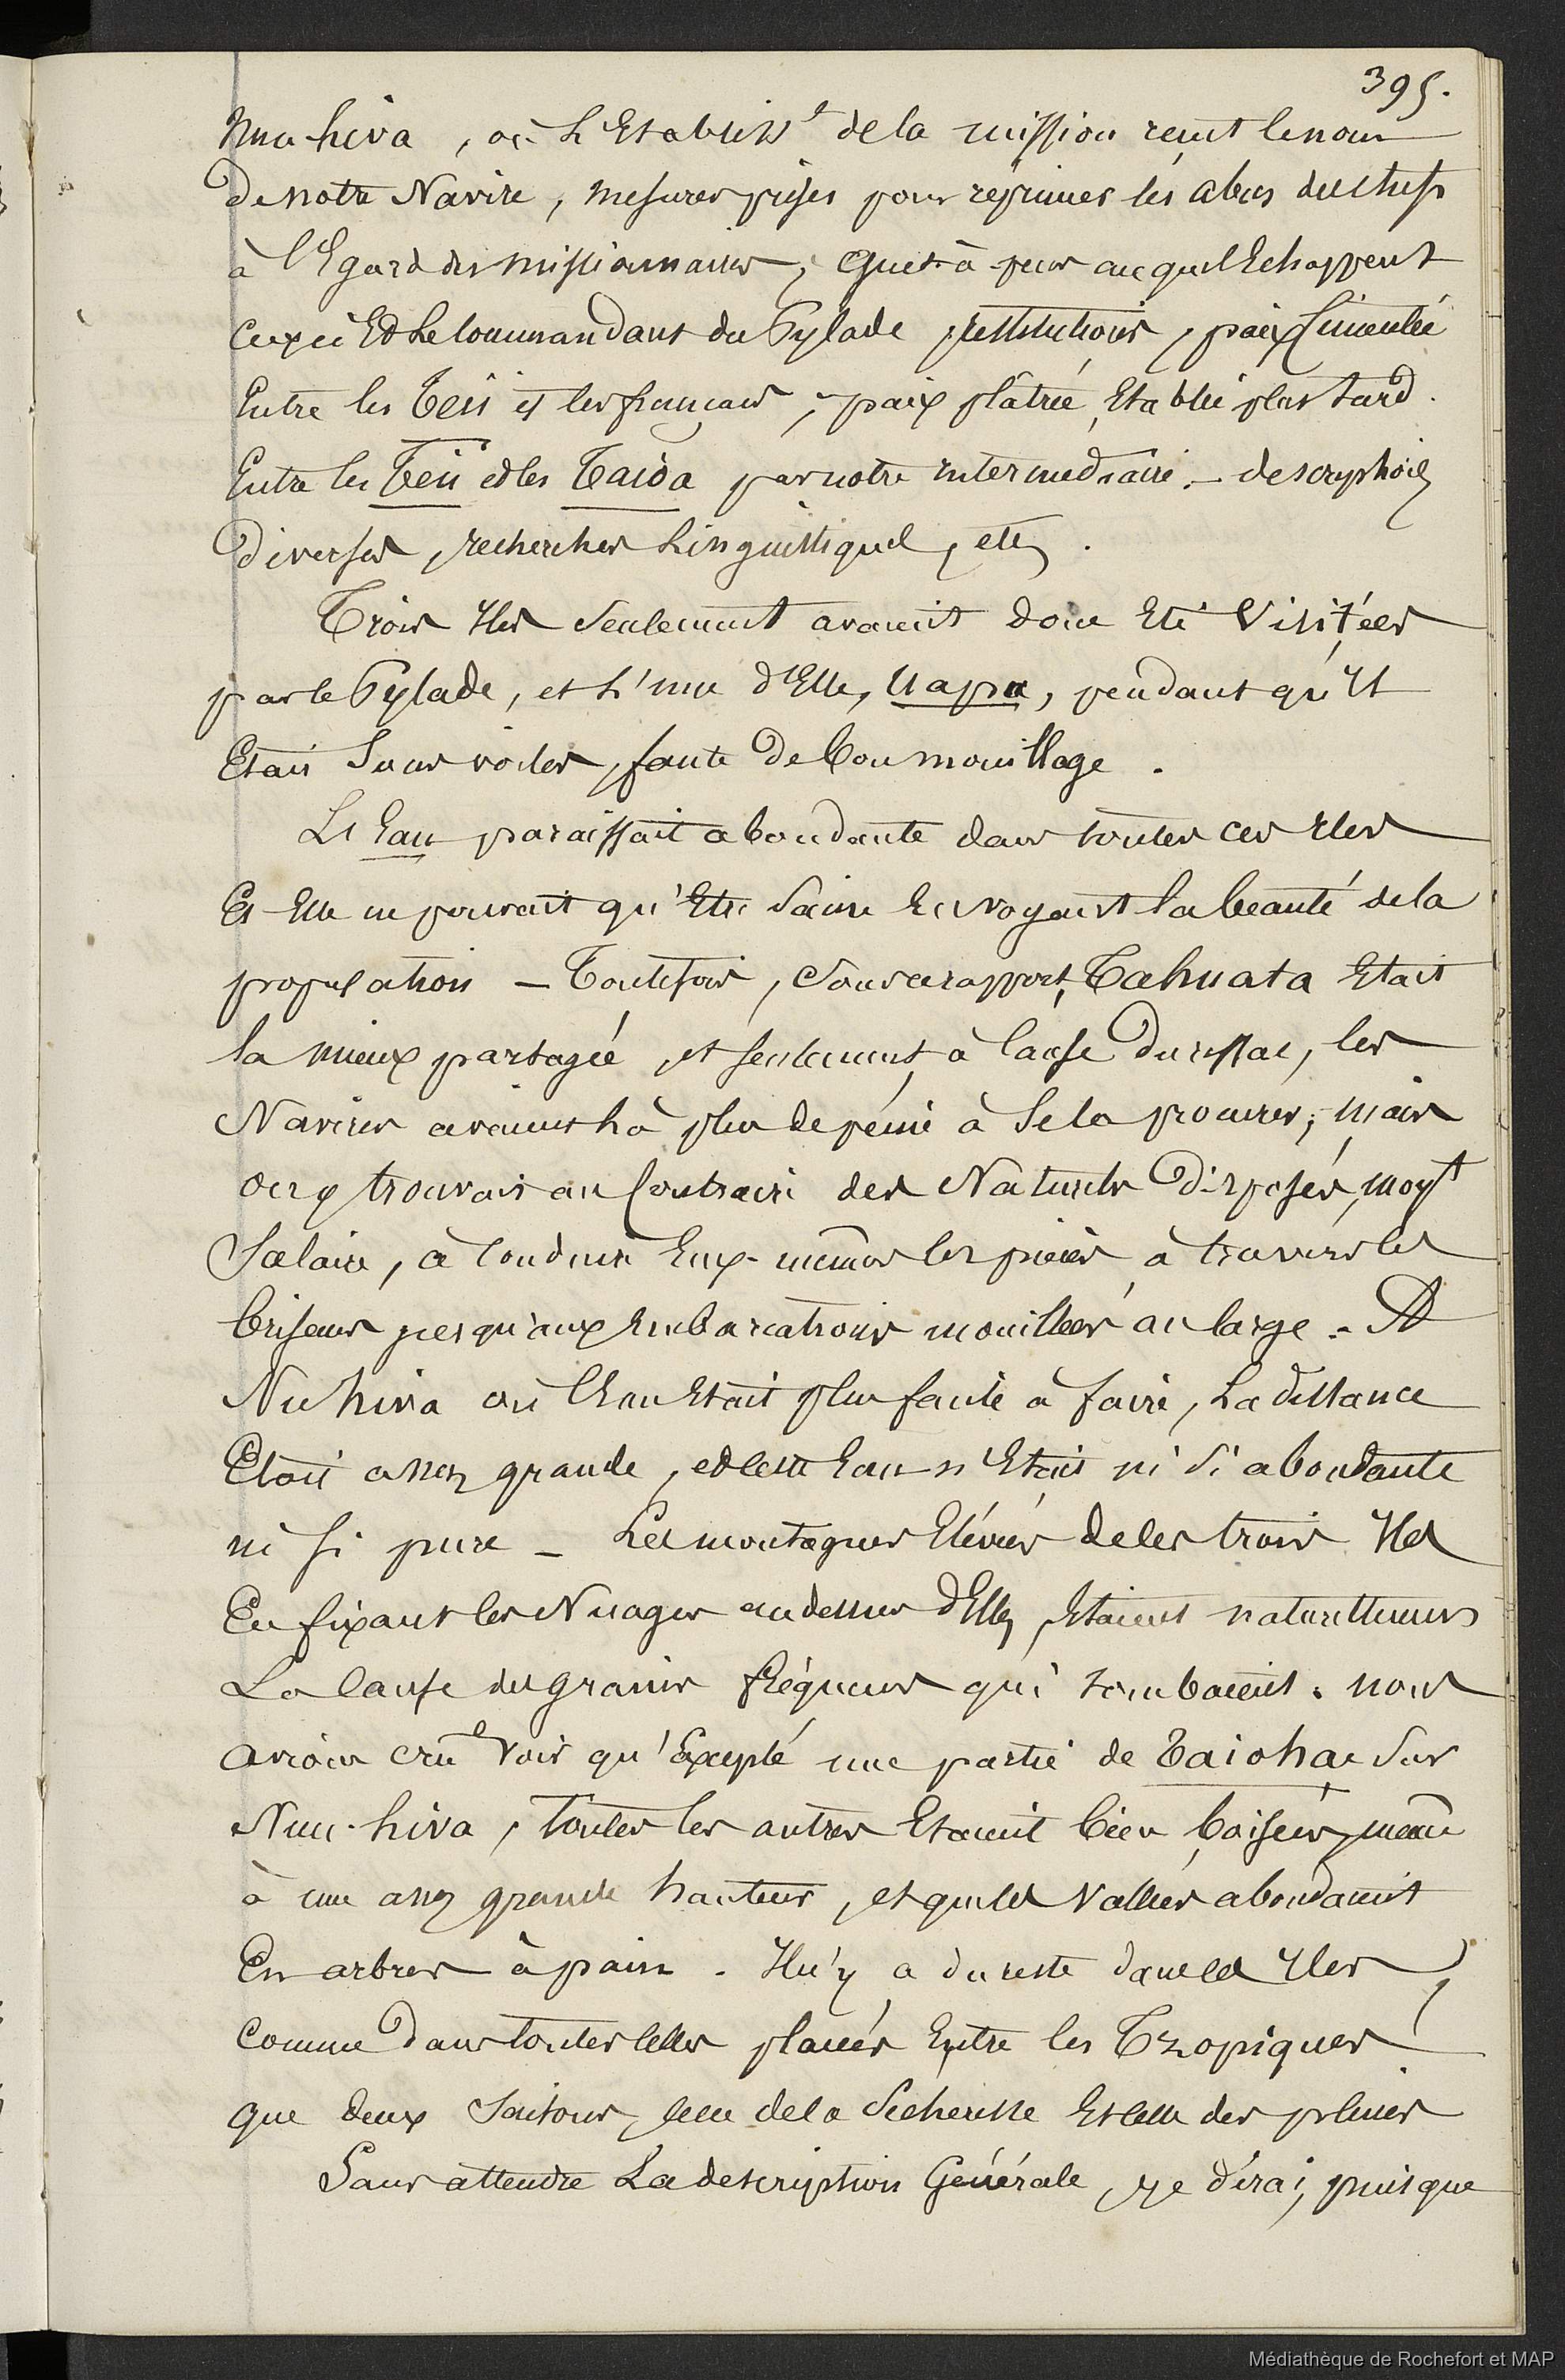 395.
Nuu-hiva, où L'Etablisst de la mission reçut le nom
de notre Navire, mesures prises pour réprimer les abus des chefs
à l'Egard des missionnaires, auquel Echappent
Ceux ci Et Le Commandant du Pylade, restitutions, paix Cimentée
Entre les Teii et les français, paix plâtrée, Etablie plus tard
Entre les Teii et les Taioa par notre intermediaire. — descriptions
diverses, recherches Linguistiques, etc.
Trois Iles Seulement avaient donc Eté Visitées
par le Pylade, et L'une d'Elles, Uapu, pendant qu'Il
Etait Sous voiles, faute de bon mouillage.
L'Eau paraissait abondante dans toutes ces Iles
Et Elle ne pouvait qu'Etre Saine En voyant la beauté de la
population — Toutefois, Sous ce rapport, Tahuata Etait
la mieux partagée, et seulement, à Cause du ressac, les
Navires avaient là plus de peine à Se la procurer; mais
on y trouvait au Contraire des Naturels Disposés, moyt
Salaire, à Conduire Eux-mêmes les pièces à travers les
brisans jusqu'aux Embarcations mouillées au large. — A
Nuhiva où l'Eau Etait plus facile à faire, La distance
Etait assez grande, et cette Eau n'Etait ni Si abondante
ni Si pure — Les montagnes Elévées de ces trois Iles
En fixant les Nuages au dessus d'Elles, Etaient naturellement
La Cause des grains fréquens qui tombaient. nous
avions cru voir qu'Excepté une partie de Taiohae Sur
Nuu-hiva, toutes les autres Etaient bien boisées, même
à une assez grande hauteur, et que les Vallées abondaient
En arbres à pain. Il n'y a du reste dans ces Iles,
Comme Dans toutes Celles placées Entre les Tropiques,
que deux Saisons, Celle de la Sécheresse Et Celle des pluies
Sans attendre La description Générale, je dirai, puisque
Médiathèque de Rochefort et MAP